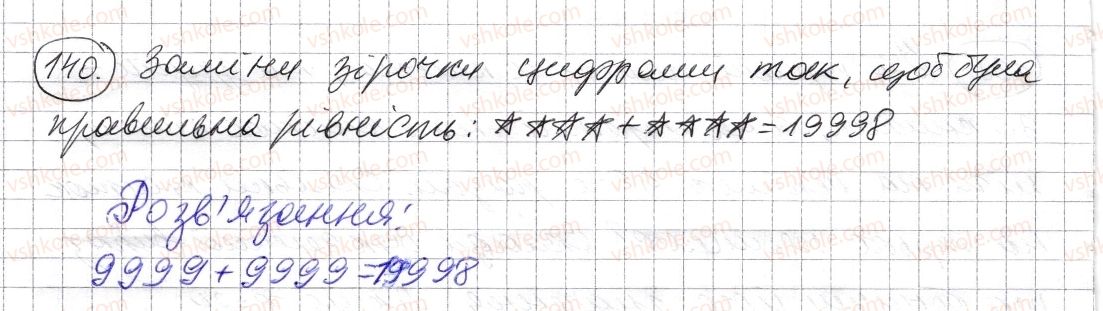 140. Заміни зірочки цифрами так, щоб була
правильна рівність: ****+****=19998
Розв'язання:
9999+9999=19998